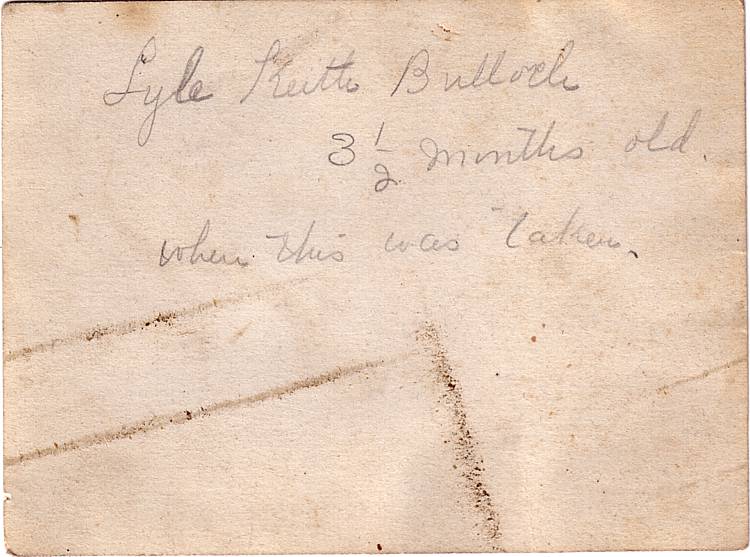 Lyle Keith Bulloch
3 1/2 months old.
when this was taken.